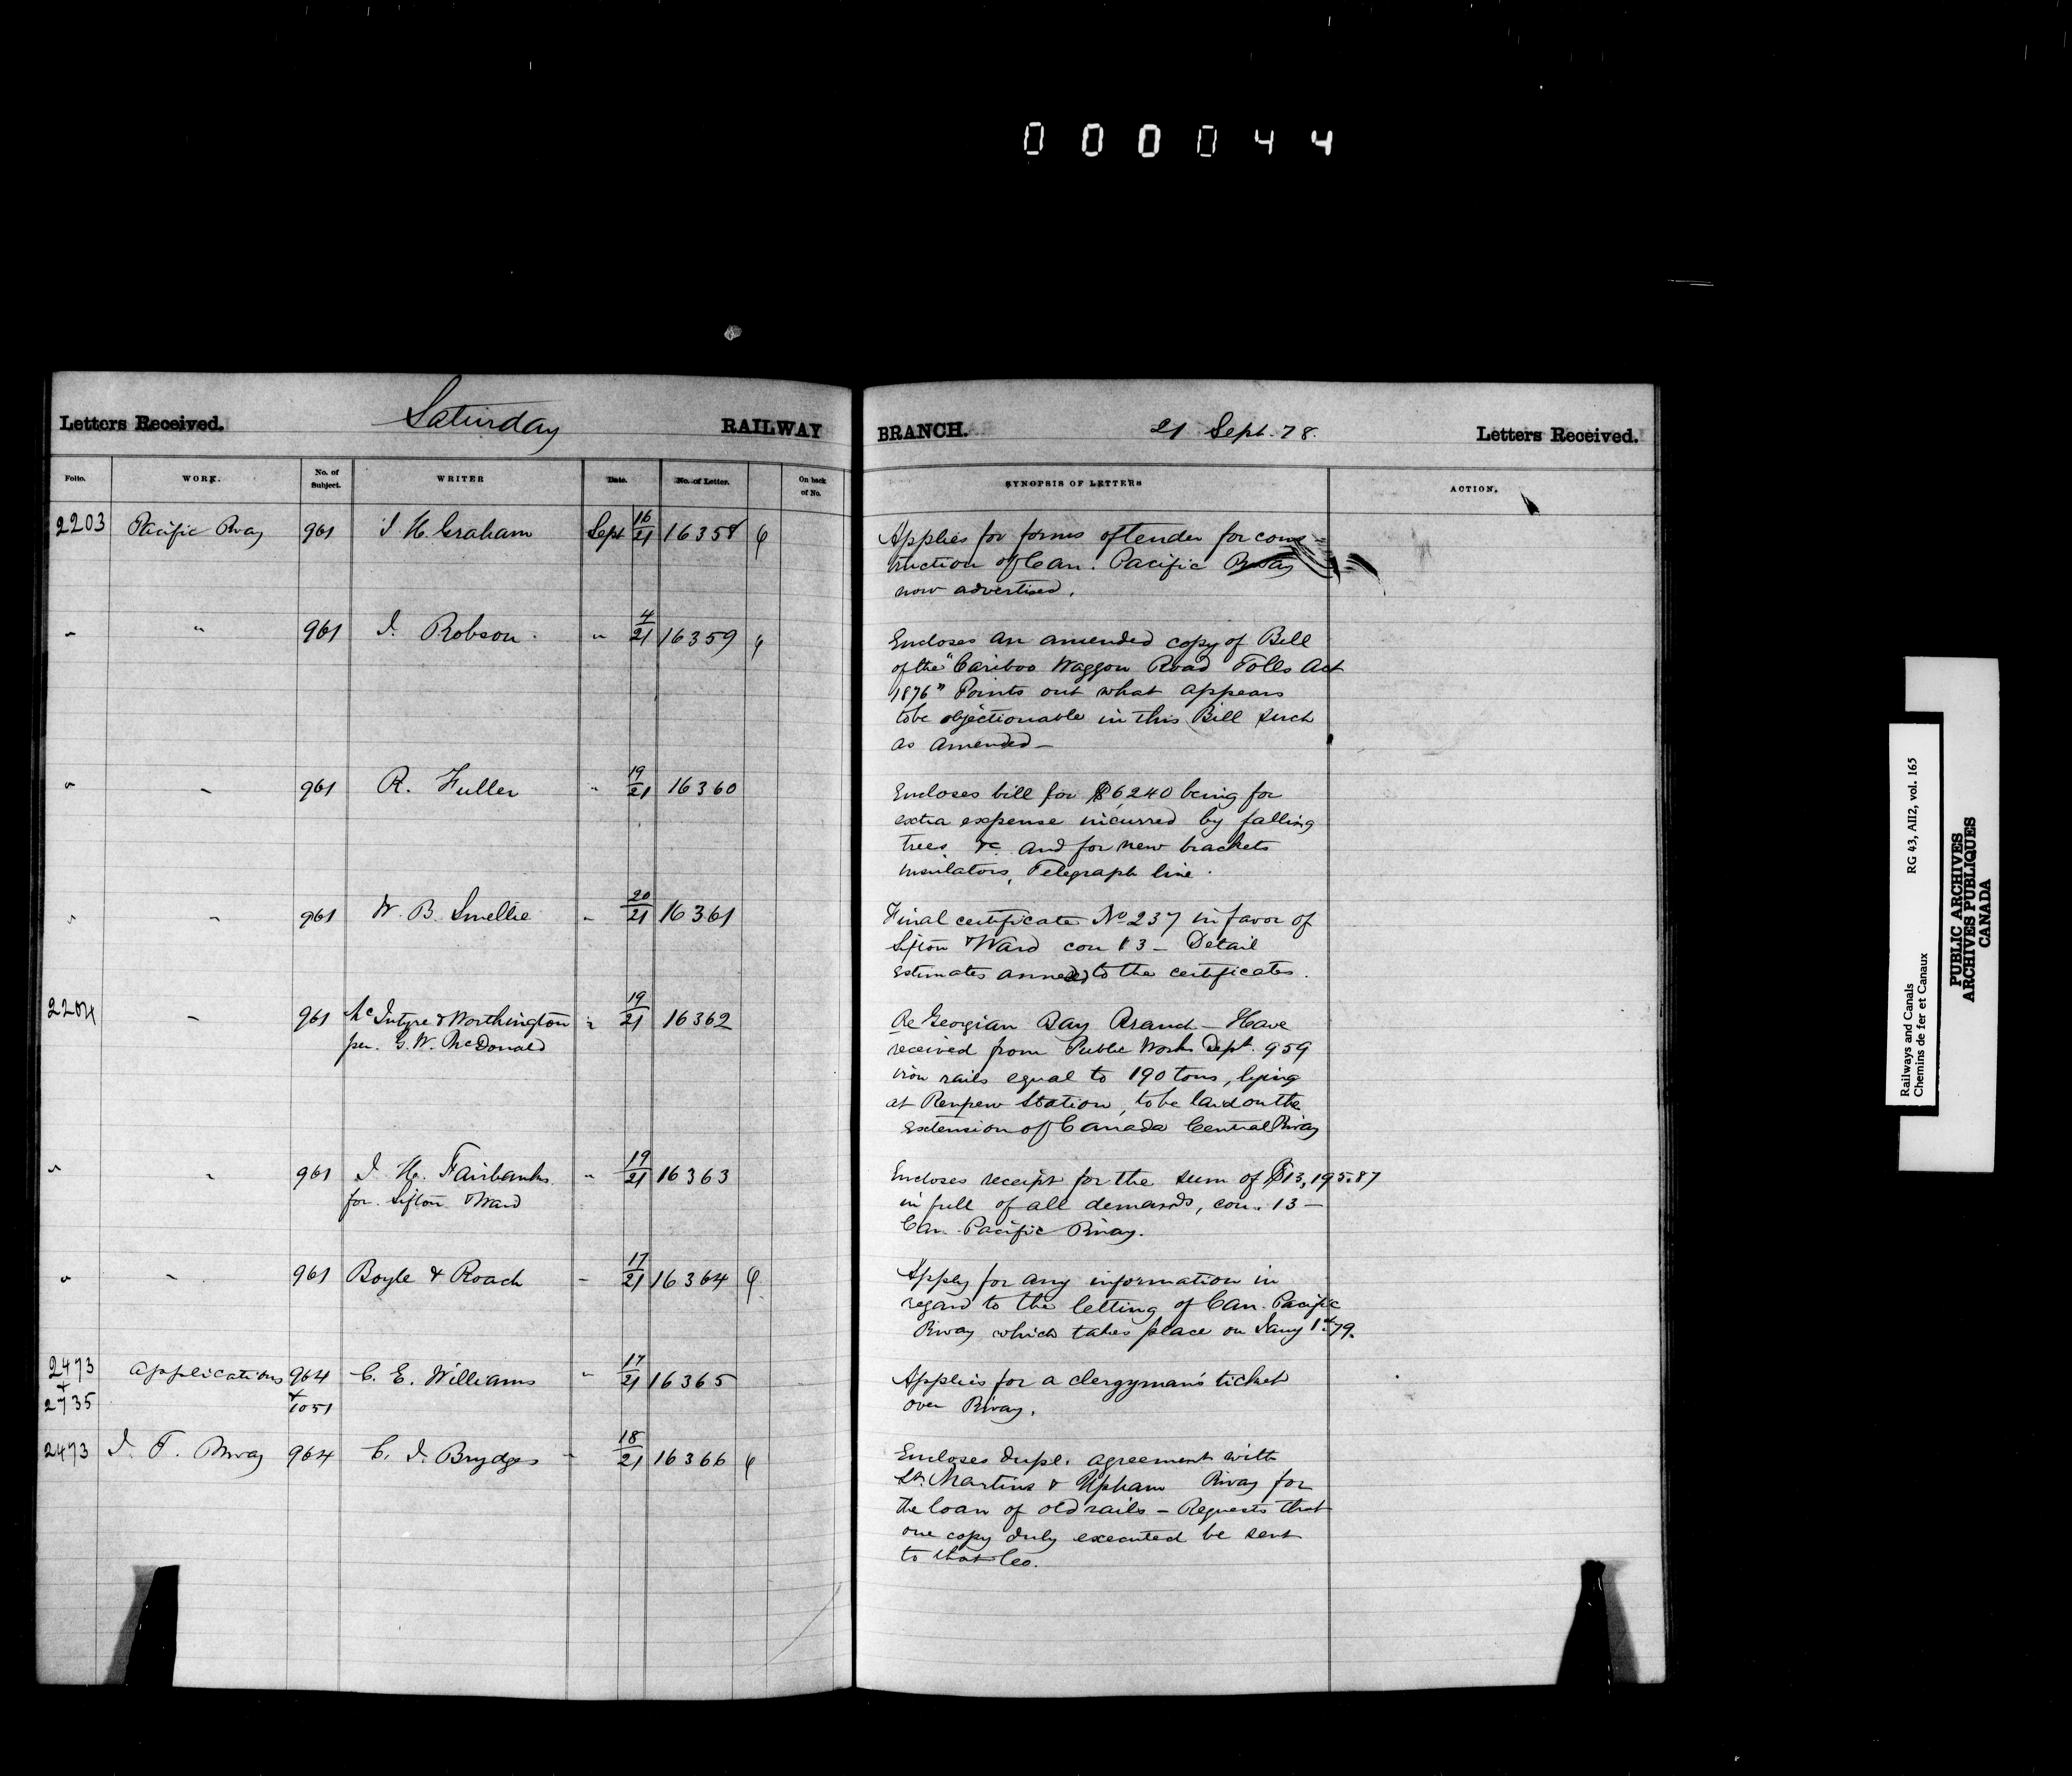 000044
Letters Received. Saturday RAILWAY BRANCH. 21 Sept. 78. Letters Received.
Folio. WORK. No. of Subject. WRITER Date. No. of Letter. On back of No. SYNOPSIS OF LETTERS ACTION.
2203 Pacific Rway 961 J H. Graham Sept 16/21 16358 Applies for forms of tender for cons-
truction of Can. Pacific Rway
now advertised.
" " 961 J. Robson " 4/21 16359 Encloses an amended copy of Bill
of the "Cariboo Waggon Road Tolls Act
1876" Points out what appears
to be objectionable in this Bill such
as amended—
" " 961 R. Fuller " 19/21 16360 Encloses bill for $6240 being for
extra expense incurred by falling
trees &c and for new brackets
insulators, Telegraph line.
" " 961 W. B. Smellie " 20/21 16361 Final certificate No 237 in favor of
Sifton & Ward con 13 — Detail
estimates annexed to the certificates.
2204 " 961 McIntyre & Worthington " 19/21 16362 Re Georgian Bay Branch — Have
per. G. W. McDonald received from Public Works Dept. 959
iron rails equal to 190 tons, lying
at Renfrew Station, to be laid on the
extension of Canada Central Rway
" " 961 J. H. Fairbanks " 19/21 16363 Encloses receipt for the sum of $13,195.87
for. Sifton & Ward in full of all demands, con. 13 —
Can. Pacific Rway.
" " 961 Boyle & Roach " 17/21 16364 Apply for any information in
regard to the letting of Can. Pacific
Rway which takes place on Jany 1st 79.
2473 Applications 964 C. E. Williams " 17/21 16365 Applies for a clergyman's ticket
+ 2735 + 1051 over Rway.
2473 I. T. Rway 964 C. J. Brydges " 18/21 16366 Encloses dupl. agreement with
St. Martins & Upham Rway for
the loan of old rails — Requests that
one copy duly executed be sent
to that Co.
Railways and Canals RG 43, AII2, vol. 165
Chemins de fer et Canaux
PUBLIC ARCHIVES
ARCHIVES PUBLIQUES
CANADA